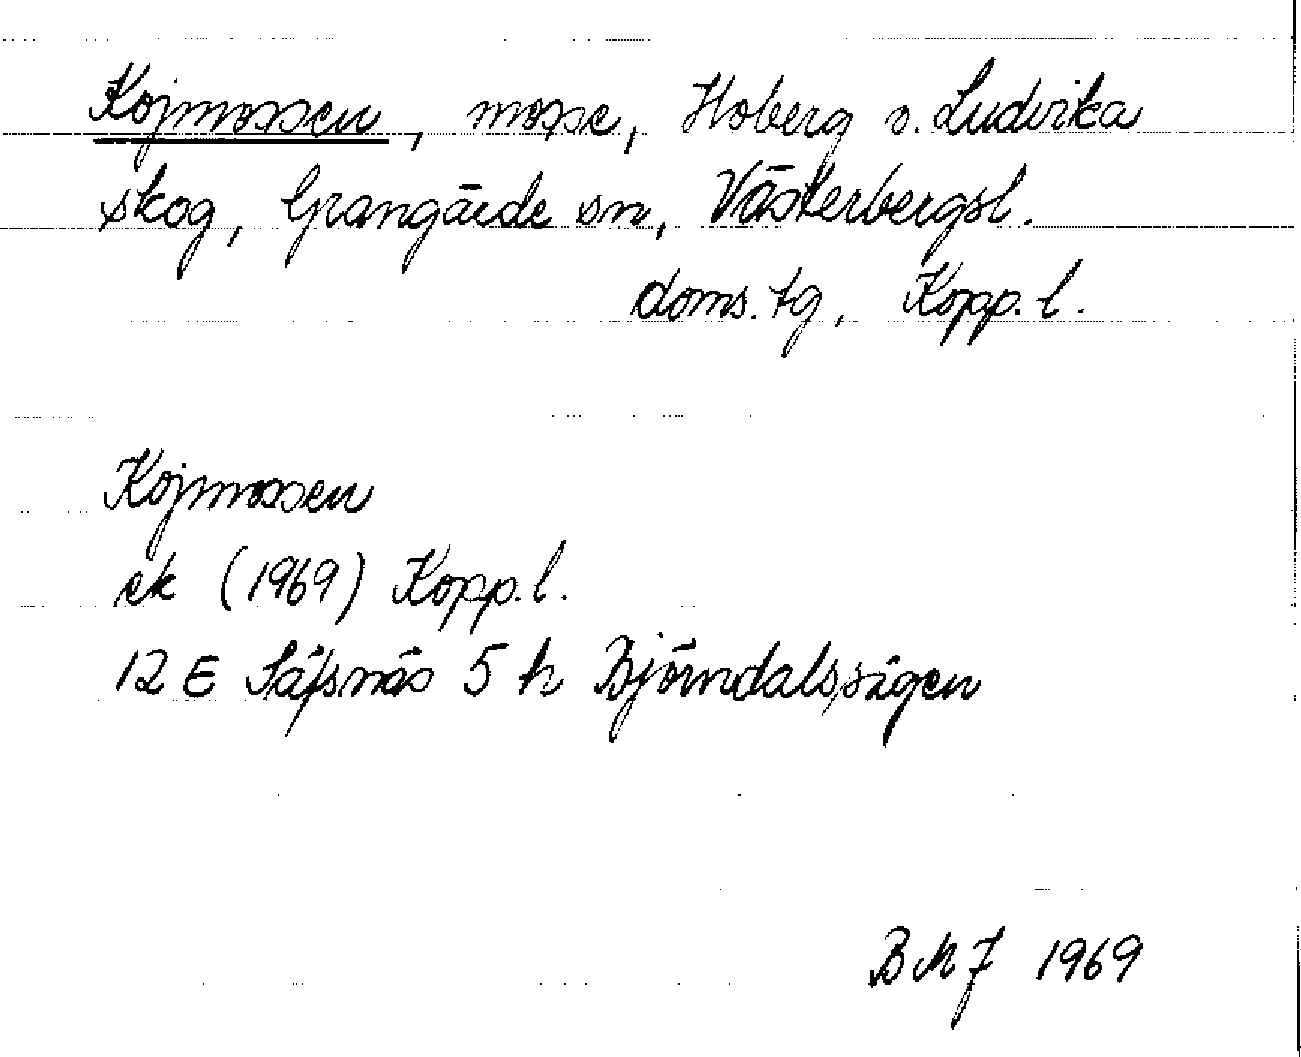 Kojmossen, mosse, Hoberg v. Ludvika
skog, Grangärde sn, Västerbergsl.
doms. tg, Kopp. l.
Kojmossen
ek (1969) Kopp. l.
12 E Säfsnäs 5 h Björndalssågen
BMJ 1969